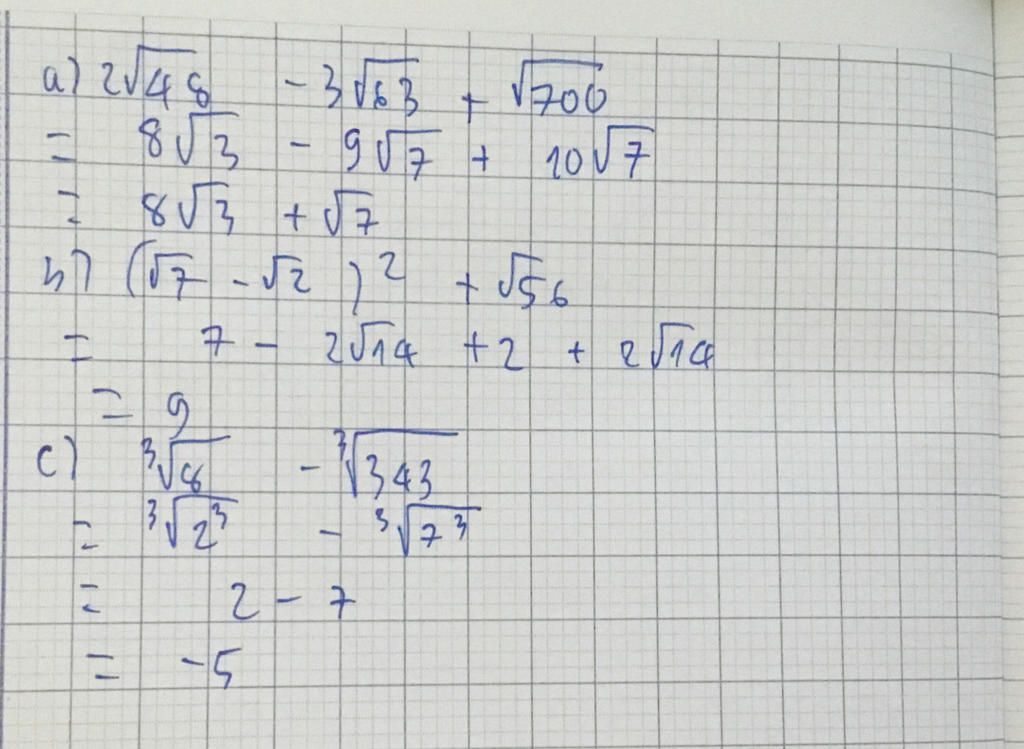 a) 2√48 - 3√63 + √700
= 8√3 - 9√7 + 10√7
= 8√3 + √7
b) (√7 - √2)² + √56
= 7 - 2√14 + 2 + 2√14
= 9
c) ³√8 - ³√343
= ³√2³ - ³√7³
= 2 - 7
= -5